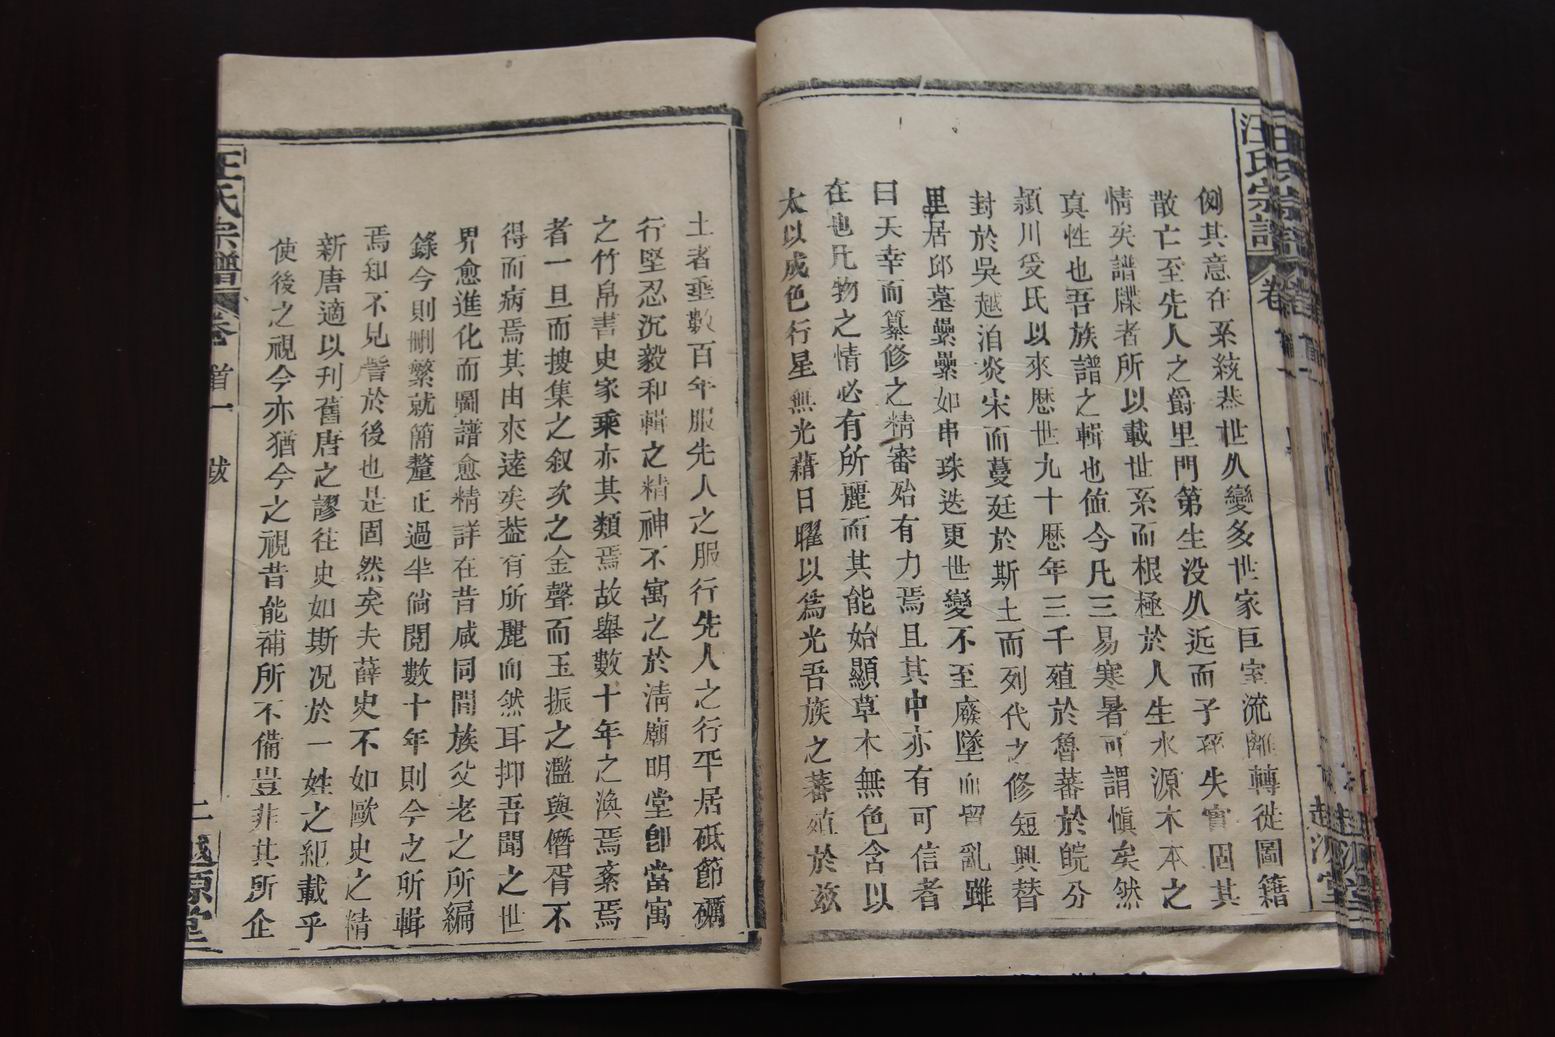 汪氏宗譜 卷首一 越源堂
例其意在系統恭世久變多世家巨室流離轉徙圖籍
散亡至先人之爵里門第生没久远而子孫失實固其
情矣譜牒者所以載世系而根極於人生水源木本之
真性也吾族譜之輯也值今凡三易寒暑可謂愼矣然
頴川受氏以來歷世九十歷年三千殖於魯蕃於皖分
封於吳越洎炎宋而蔓延於斯土而列代之修短興替
里居邱墓纍纍如串珠迭更世變不至廢墜而留亂雖
曰天幸而纂修之精審殆有力焉且其中亦有可信者
在也凡物之情必有所麗而其能始顯草木無色含以
太以成色行星無光藉日曜以爲光吾族之蕃殖於兹
土者垂數百年服先人之服行先人之行平居砥節礪
行堅忍沉毅和輯之精神不寓之於淸廟明堂卽當寓
之竹帛書史家乘亦其類焉故舉數十年之渙焉紊焉
者一旦而搜集之叙次之金聲而玉振之濫與僭胥不
得而病焉其由來逺矣葢有所麗而然耳抑吾聞之世
界愈進化而圖譜愈精詳在昔咸同間族父老之所編
錄今則刪繁就簡釐正過半倘閱數十年則今之所輯
焉知不見訾於後也是固然矣夫薛史不如歐史之精
新唐適以刊舊唐之謬往史如斯况於一姓之紀載乎
使後之視今亦猶今之視昔能補所不備豈非其所企
汪氏宗譜 卷首一 跋 越源堂